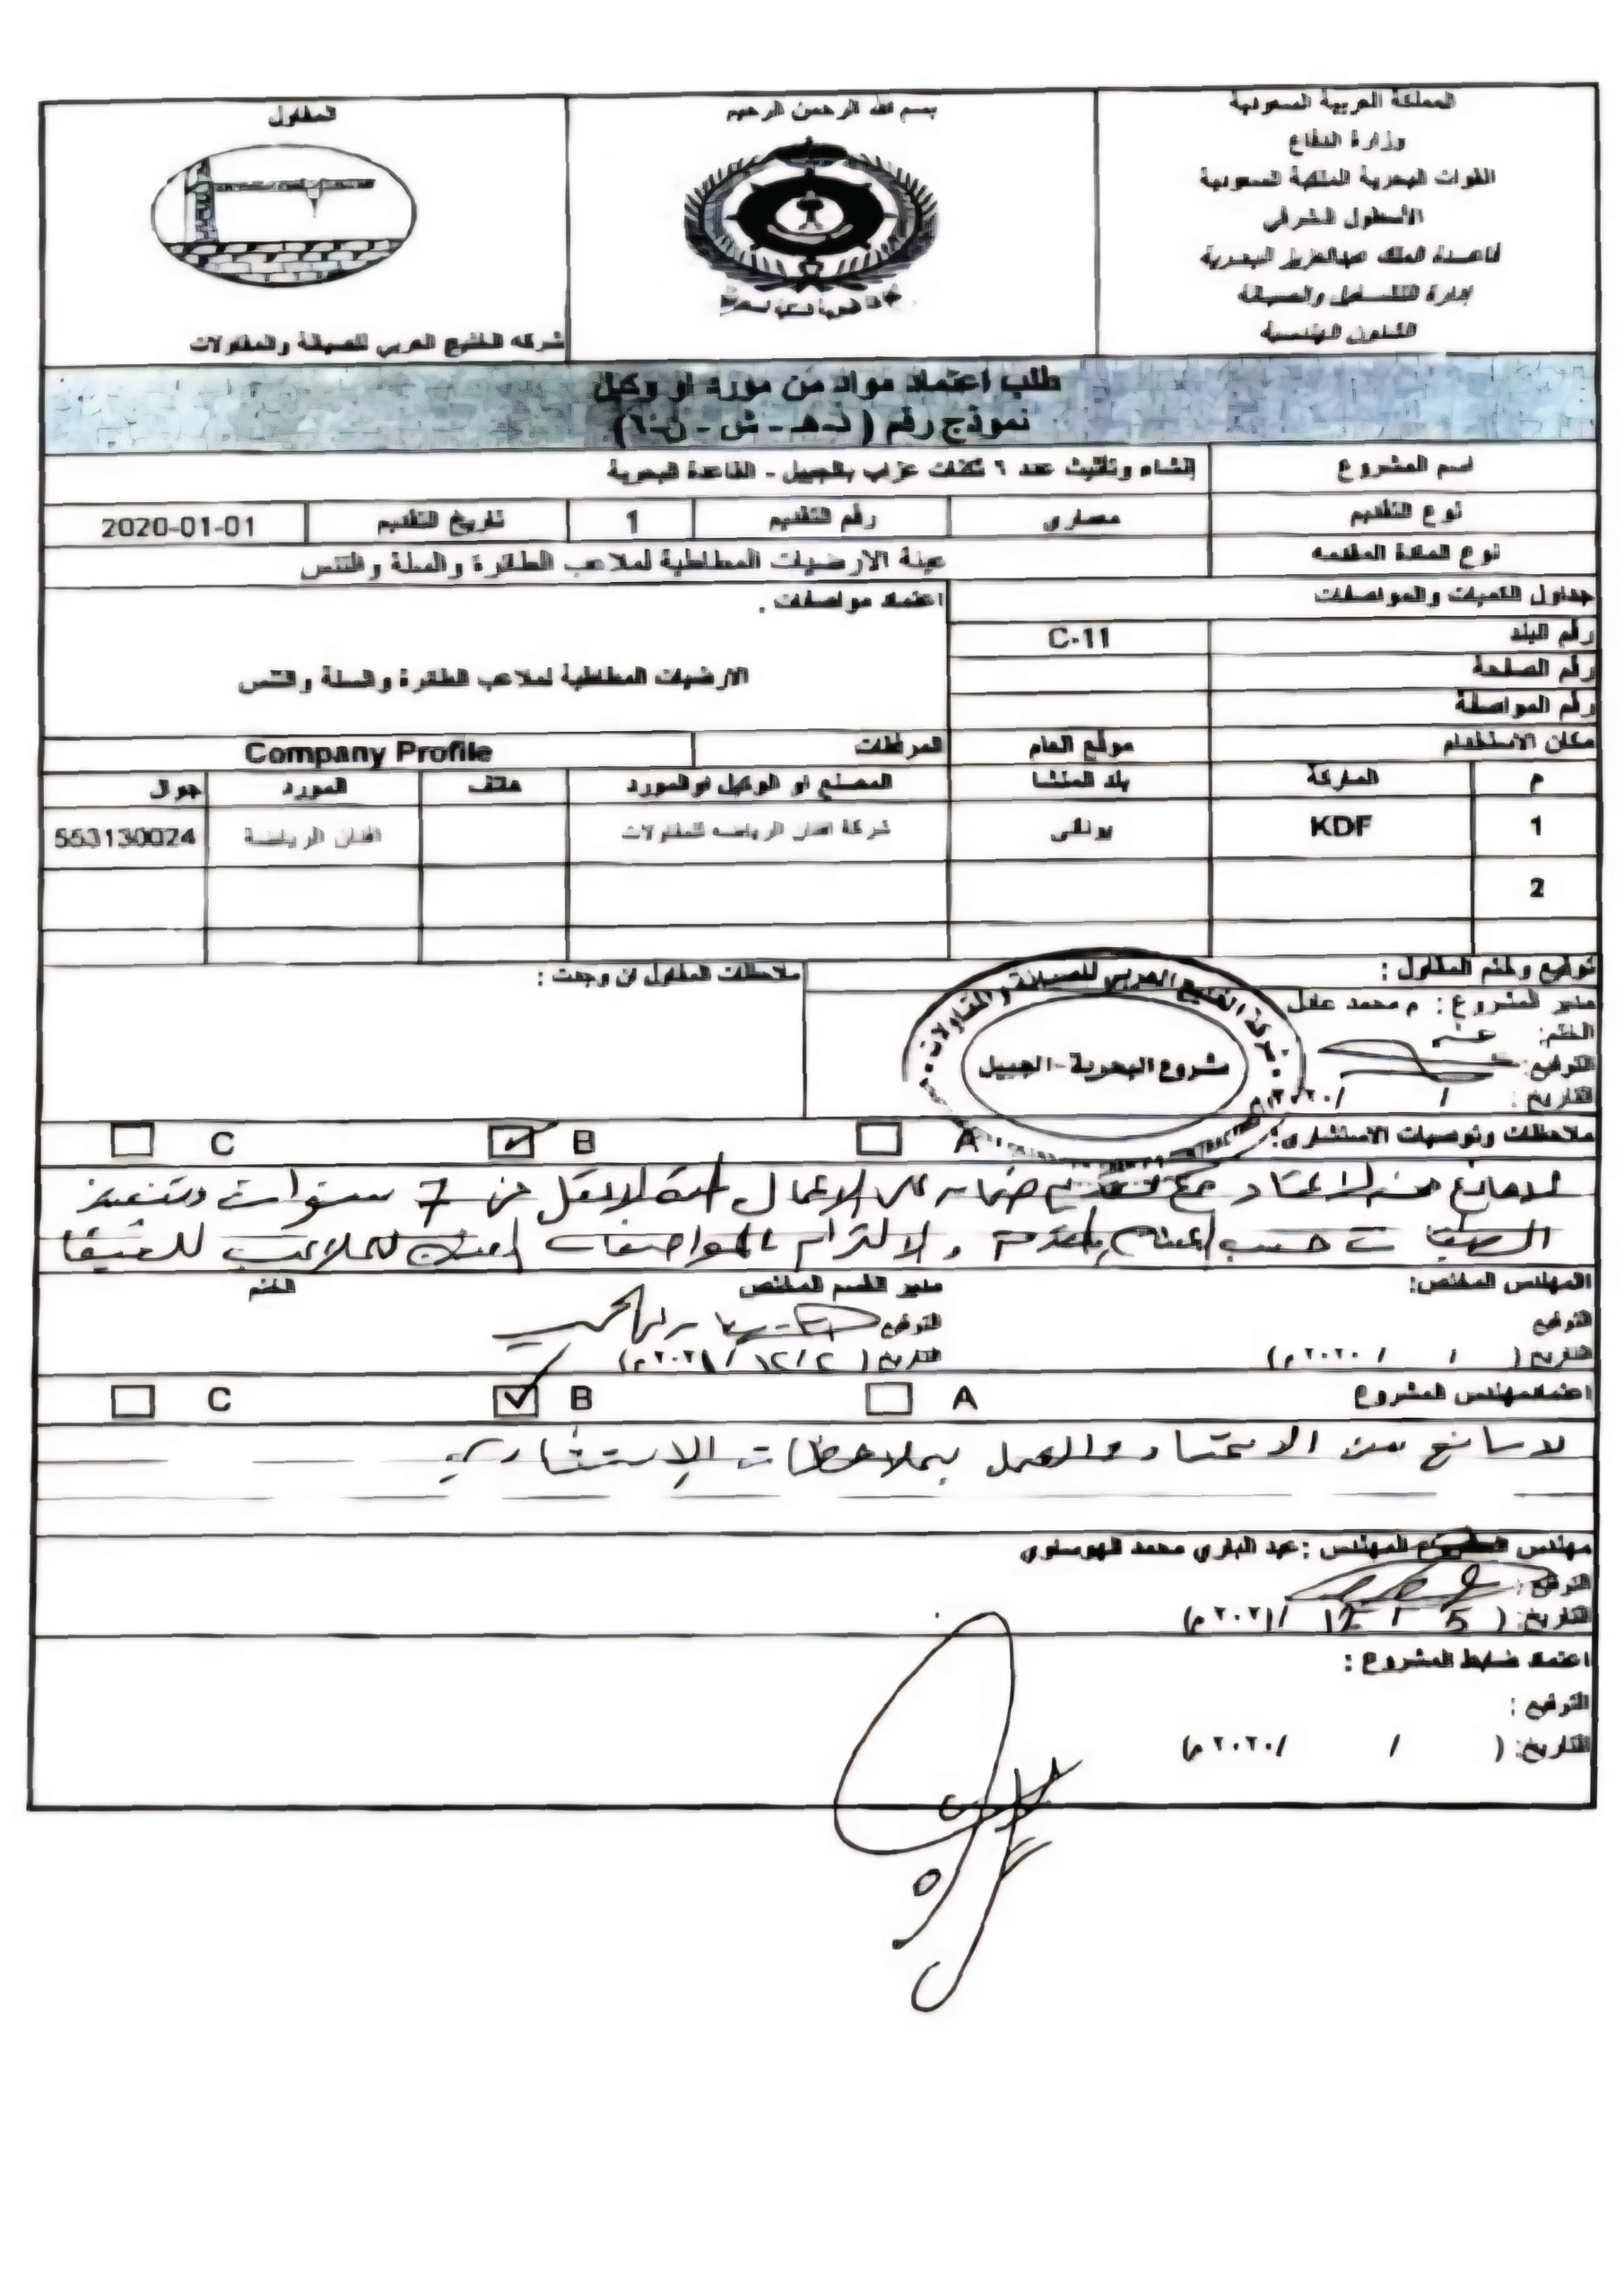 المملكة العربية السعودية
وزارة الدفاع
القوات البحرية الملكية السعودية
الأسطول الشرقي
قاعدة الملك عبدالعزيز البحرية
إدارة التشغيل والصيانة
الشئون الهندسية
بسم الله الرحمن الرحيم
المقاول
شركة الخليج العربي للصيانة والمقاولات
طلب اعتماد مواد من مورد او وكيل
نموذج رقم
اسم المشروع إنشاء وتأثيث عدد ٦ شقات عزاب بالجبيل - القاعدة البحرية
نوع التقديم معماري رقم التقديم 1 تاريخ التقديم 2020-01-01
نوع المادة المقدمه عينة الارضيات المطاطية لملاعب الطائرة والسلة والتنس
جداول الكميات والمواصفات اعتماد مواصفات .
رقم البند C-11
رقم الصفحة الارضيات المطاطية لملاعب الطائرة والسلة والتنس
رقم المواصفة
مكان الاستخدام موقع العام المرفقات Company Profile
م الماركة بلد المنشا المصنع او الوكيل او المورد هاتف المورد جوال
1 KDF شركة الرياضه للمقاولات الرياضية 553130024
2
توقيع وختم المقاول : ملاحظات المقاول ان وجدت :
مدير المشروع : م محمد عادل
الختم:
التوقيع:
التاريخ : / /٢٠٢٠م
شركة الخليج العربي للصيانة والمقاولات
مشروع البحرية - الجبيل
ملاحظات وتوصيات الاستشاري: A B C
لامانع من الاعتماد مع تقديم ضمان على الاعمال لمدة لاتقل عن 7 سنوات وتنفيذ
الطبقات حسب المقدمة والالتزام بالمواصفات للملاعب
المهندس المختص: مدير القسم المختص الختم
التوقيع التوقيع
التاريخ ( / / ٢٠٢٠م) التاريخ ( ٢ / ١٢ / ٢٠٢١م)
اعتمادمهندس المشروع A B C
لا مانع من الاعتماد والعمل بملاحظات الإستشاري
مهندس المهندس : عبد الباري محمد الهوساوي
التوقيع :
التاريخ: ( 5 / 12 /٢٠٢١م)
اعتماد ضابط المشروع :
التوقيع :
التاريخ: ( / /٢٠٢٠م)